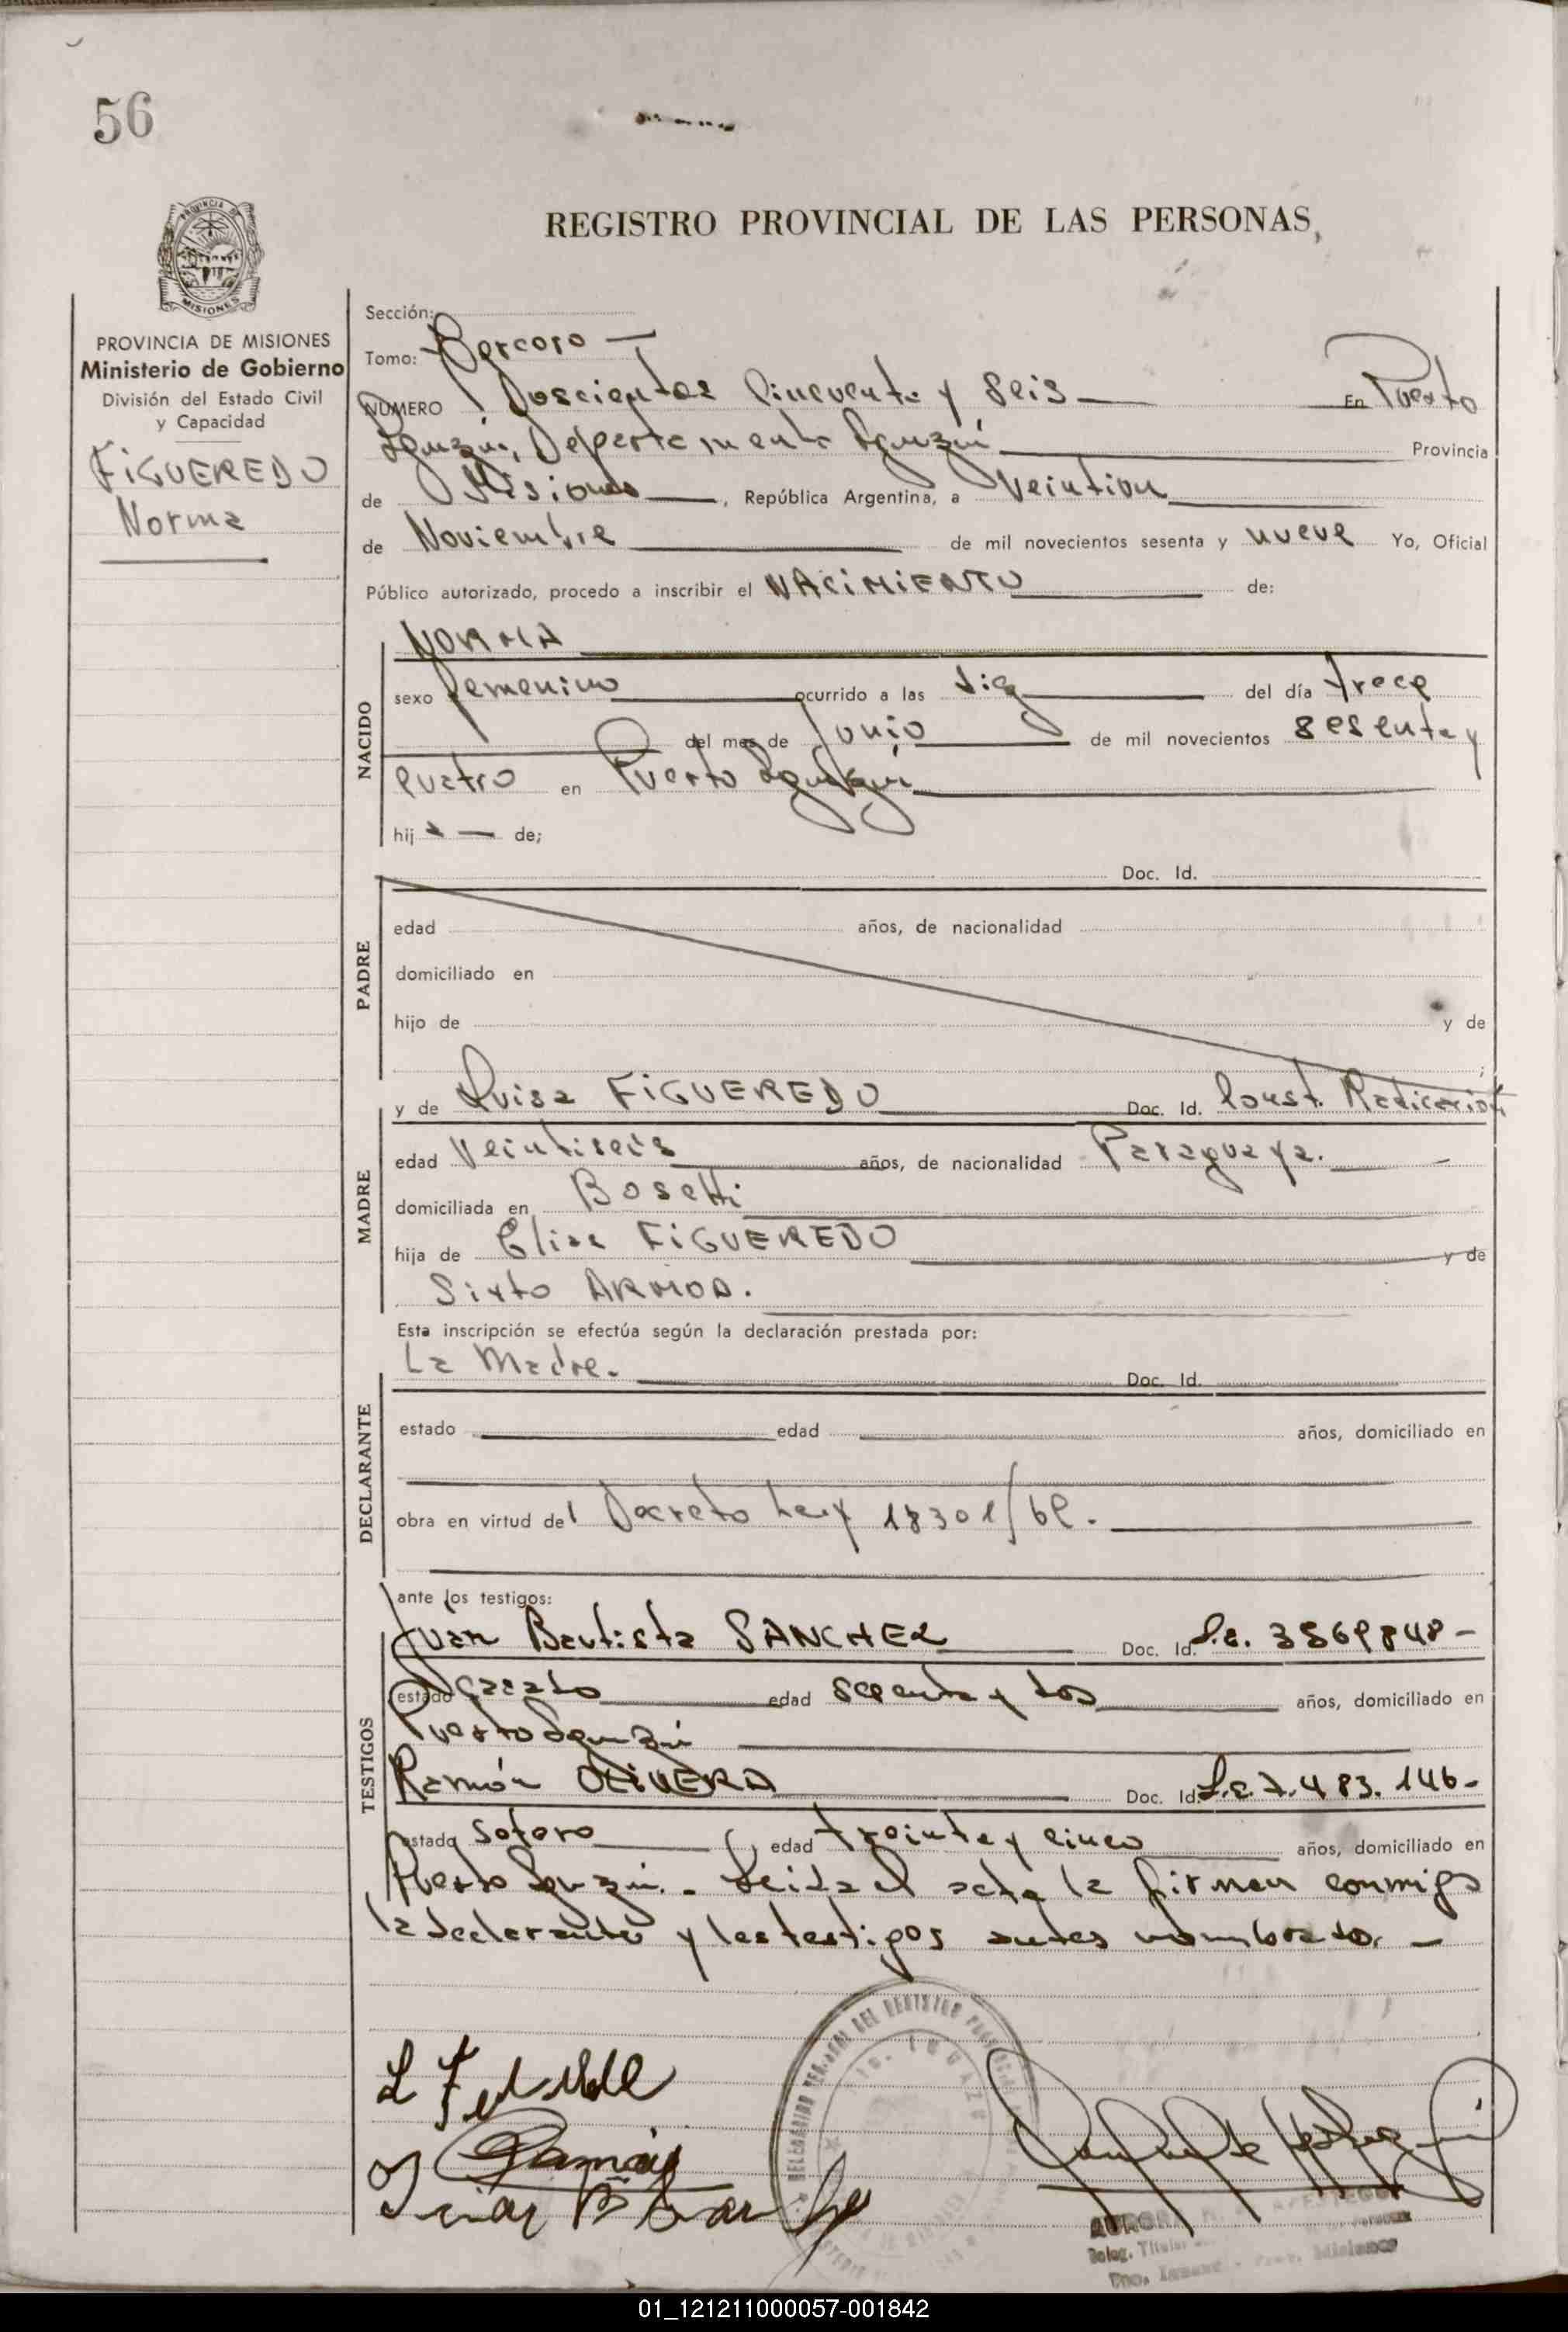 56
REGISTRO PROVINCIAL DE LAS PERSONAS
PROVINCIA DE
MISIONES
PROVINCIA DE MISIONES
Ministerio de Gobierno
División del Estado Civil
y Capacidad
FiGUEREDO
Norma
Sección:
Tomo:
NÚMERO Doscientos Cincuenta y Seis En Puerto
Iguazú, Departamento Iguazú Provincia
de Misiones, República Argentina, a
de Noviembre de mil novecientos sesenta y nueve Yo, Oficial
Público autorizado, procedo a inscribir el NACiMiENTO de:
NORMA
NACIDO
sexo femenino ocurrido a las diez del día trece
del mes de Junio de mil novecientos sesenta y
cuatro en Puerto Iguazú
hij a — de;
Doc. Id.
PADRE
edad años, de nacionalidad
domiciliado en
hijo de y de
y de Luisa FiGUEREDO Doc. Id. Const. Radicación
MADRE
edad Veintiseis años, de nacionalidad Paraguaya.
domiciliada en Bosetti
hija de Elisa FiGUEREDO y de
Sixto ARMOA.
Esta inscripción se efectúa según la declaración prestada por:
La Madre. Doc. Id.
DECLARANTE
estado edad años, domiciliado en
obra en virtud del Decreto Ley 18301/69.
ante los testigos:
TESTIGOS
Juan Bautista SANCHEZ Doc. Id. L.e. 3569848-
estado edad setenta y dos años, domiciliado en
Puerto Iguazú
Ramón OLiVERA Doc. Id. L.e. 7.483.146-
estado Soltero edad treinta y cinco años, domiciliado en
Puerto Iguazú. - Leida el acta la firman conmigo
la declarante y los testigos antes nombrados. —
Ramón
01_121211000057-001842